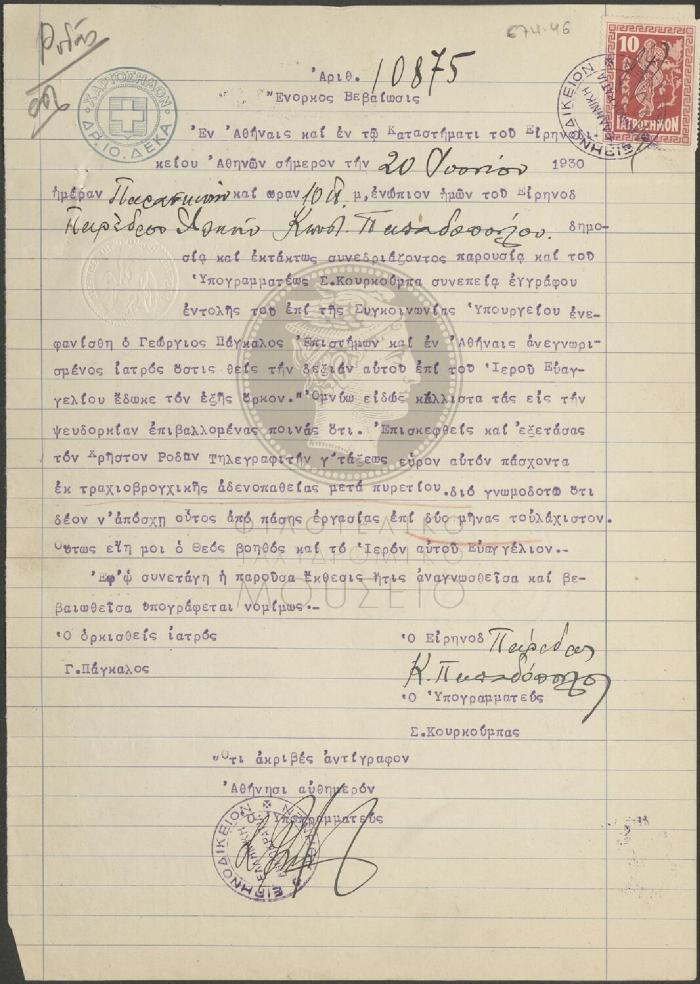 Ρόδαν
674-46
10
ΙΑΤΡΟΣΗΜΟΝ
ΧΑΡΤΟΣΗΜΟΝ
ΔΡ. 10. ΔΕΚΑ
Ἀριθ. 10875
Ἔνορκος Βεβαίωσις
Ἐν Ἀθήναις καί ἐν τῷ Καταστήματι τοῦ Εἰρηνοδι
κείου Ἀθηνῶν σήμερον τήν 20 Ἰουνίου 1930
ἡμέραν Παρασκευήν καί ὥραν 10 π. μ, ἐνώπιον ἡμῶν τοῦ Εἰρηνοδ
Παρέδρου Κωνστ. Παπαδοπούλου. δημο-
σίᾳ καί ἐκτάκτως συνεδριάζοντος παρουσίᾳ καί τοῦ
Ὑπογραμματέως Σ. Κουρκούμπα συνεπείᾳ ἐγγράφου
ἐντολῆς τοῦ ἐπί τῆς Συγκοινωνίας Ὑπουργείου ἐνε-
φανίσθη ὁ Γεώργιος Πάγκαλος Ἐπιστήμων καί ἐν Ἀθήναις ἀνεγνωρι-
σμένος ἰατρός ὅστις θείς τήν δεξιάν αὐτοῦ ἐπί τοῦ Ἱεροῦ Εὐαγ-
γελίου ἔδωκε τόν ἑξῆς ὅρκον. "Ὀμνύω εἰδώς κάλλιστα τάς εἰς τήν
ψευδορκίαν ἐπιβαλλομένας ποινάς ὅτι. Ἐπισκεφθείς καί ἐξετάσας
τόν Χρῆστον Ρόδαν Τηλεγραφιτήν γ' τάξεως εὗρον αὐτόν πάσχοντα
ἐκ τραχιοβρογχικῆς ἀδενοπαθείας μετά πυρετίου. διό γνωμοδοτῶ ὅτι
δέον ν' ἀπόσχῃ οὗτος ἀπό πάσης ἐργασίας ἐπί δύο μῆνας τοὐλάχιστον.
Οὕτως εἴη μοι ὁ Θεός βοηθός καί τό Ἱερόν αὐτοῦ Εὐαγγέλιον.--
Ἐφ' ᾧ συνετάγη ἡ παροῦσα ἔκθεσις ἥτις ἀναγνωσθεῖσα καί βε-
βαιωθεῖσα ὑπογράφεται νομίμως.-
Ὁ ὁρκισθείς ἰατρός
Γ. Πάγκαλος
Ὁ Εἰρηνοδ Πάρεδρος
Κ. Παπαδόπουλος
Ὁ Ὑπογραμματεύς
Σ. Κουρκούμπας
Ὅτι ἀκριβές ἀντίγραφον
Ἀθήνησι αὐθημερόν
Ὁ Ὑπογραμματεύς
ΕΙΡΗΝΟΔΙΚΕΙΟΝ
ΦΙΛΟΤΕΛΙΚΟ
ΤΑΧΥΔΡΟΜΙΚΟ
ΜΟΥΣΕΙΟ